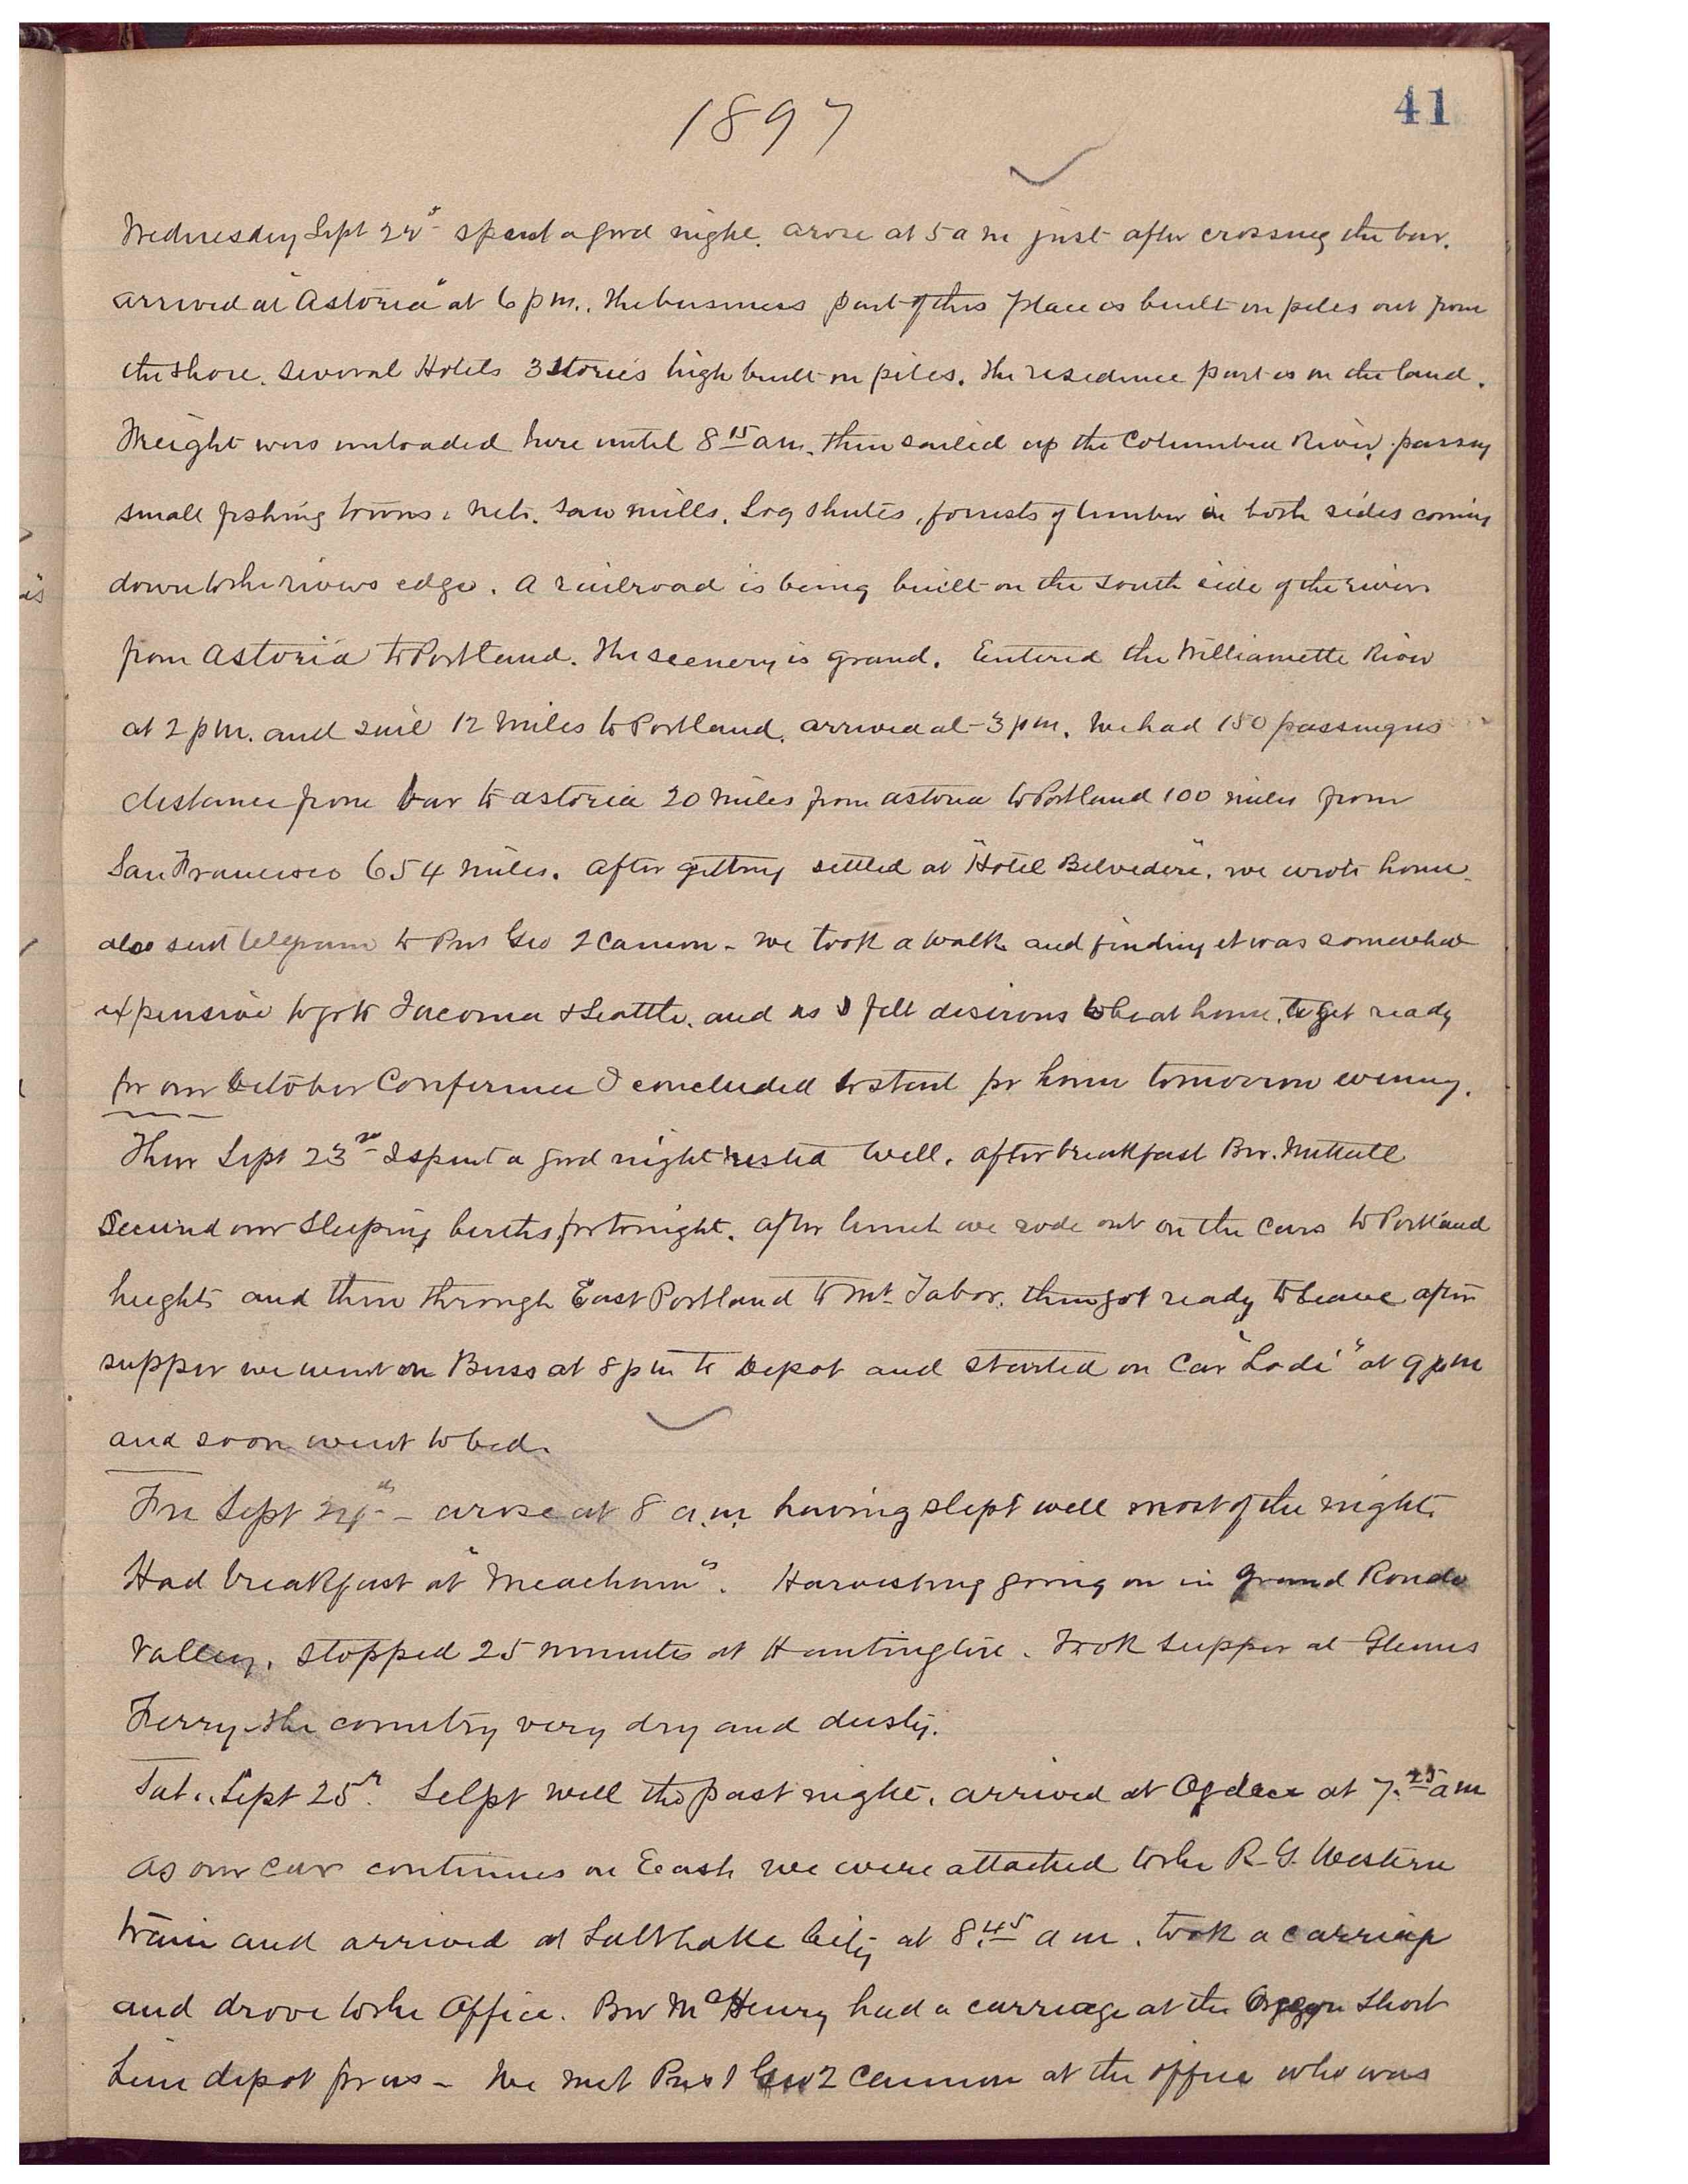 41
1897
Wednesday Sept 22d spent a good night. arose at 5 a m just after crossing the bar.
arrived at "Astoria" at 6 p m.. The business part of this place is built on piles out from
the shore. Several Hotels 3 stories high built on piles. The residence part is on the land.
Freight was unloaded here until 8 15 am. then sailed up the Columbia River, passing
small fishing towns, nets. Saw mills, Log shutes, forrests of timber on both sides coming
down to the rivers edge. A railroad is being built on the south side of the river
from Astoria to Portland. The scenery is grand. Entered the Williamette River
at 2 p m. and sail 12 miles to Portland. arrived at 3 p m. We had 150 passengers
distance from bar to Astoria 20 miles from Astoria to Portland 100 miles from
San Francisco 654 miles. After getting settled at "Hotel Belvedere". we wrote home.
also sent telegram to Prest Geo Q Cannon - We took a walk and finding it was somewhat
expensive to go to Tacoma & Seattle. and as I felt desirous to be at home. to get ready
for our October Conference I concluded to start for home tomorrow evening.
Thur Sept 23rd I spent a good night rested well. After breakfast Bro. Nuttall
Secured our sleeping births for tonight. After lunch we rode out on the Cars to Portland
heights and then through East Portland to Mt Tabor. then got ready to leave after
supper we went on Buss at 8 p m to Depot and started on Car "Lodi" at 9 p m
and soon went to bed.
Fri Sept 24th - arose at 8 a.m. having slept well most of the night.
Had breakfast at "Meacham". Harvesting going on in Grand Ronde
Valley. stopped 25 minutes at Huntington. Took supper at Glenns
Ferry - the country very dry and dusty.
Sat.. Sept 25th. Selpt well the past night. arrived at Ogden at 7.25 a m
As our car continues on East we were attached to the R. G. Western
train and arrived at Salt Lake City at 8.45 a m. took a carriage
and drove to the Office. Bro McHenry had a carriage at the Oregon Short
Line depot for us - We met Prest Geo Q Cannon at the office who was